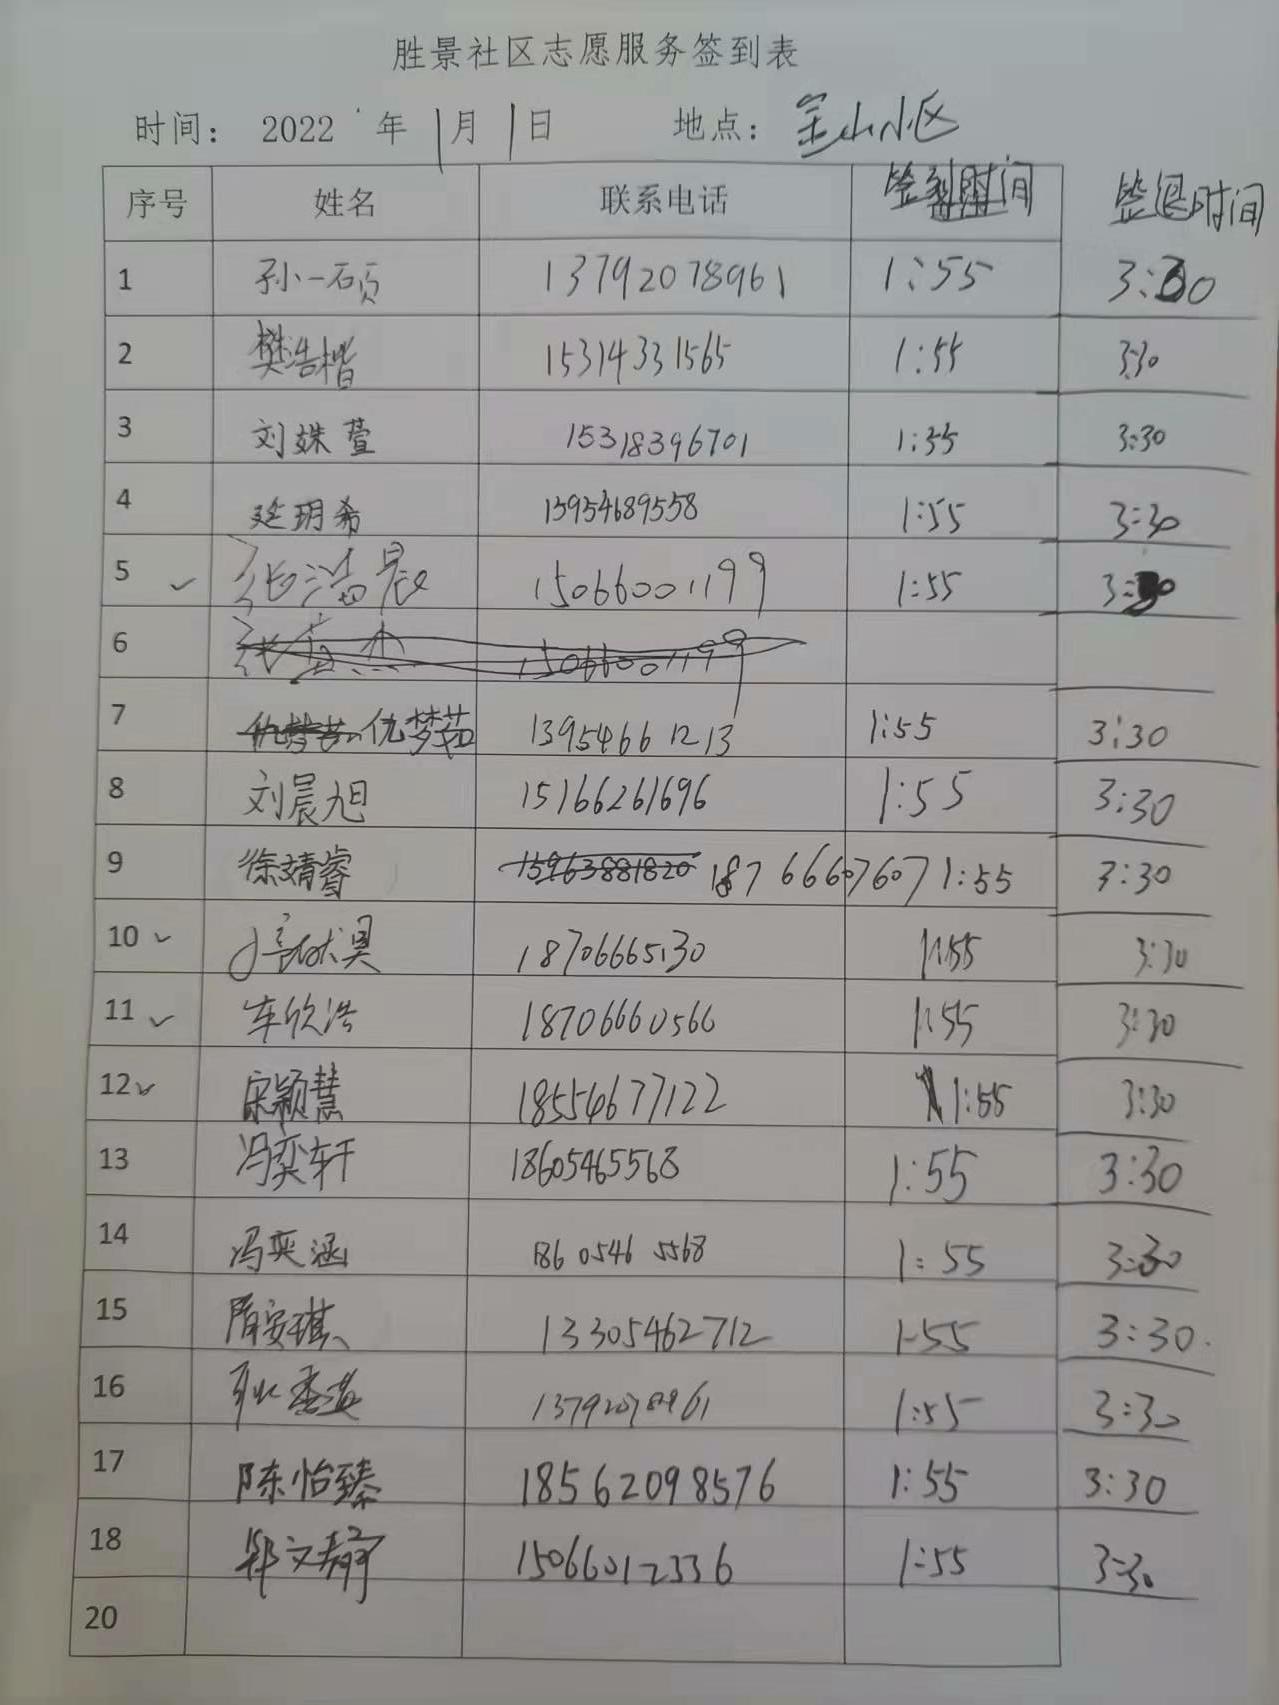 胜景社区志愿服务签到表
时间： 2022 年 1月1日 地点：金山小区
序号 姓名 联系电话 签到时间 签退时间
1 孙一硕 13792078961 1:55 3:30
2 樊浩楷 15314331565 1:55 3:30
3 刘姝萱 15318396701 1:55 3:30
4 延玥希 13954689558 1:55 3:30
5 张浩晨 15066001199 1:55 3:30
6 15066001199
7 仇梦茹 13954661213 1:55 3:30
8 刘晨旭 15166261696 1:55 3:30
9 徐靖睿 15963881820 18766607607 1:55 3:30
10 18706665130 1:55 3:30
11 车欣浩 18706660566 1:55 3:30
12 宋颖慧 18554677122 1:55 3:30
13 冯奕轩 18605465568 1:55 3:30
14 冯奕涵 186 0546 5568 1:55 3:30
15 隋安琪 13305462712 1:55 3:30
16 13792078961 1:55 3:30
17 陈怡臻 18562098576 1:55 3:30
18 郑文静 15066012336 1:55 3:30
20